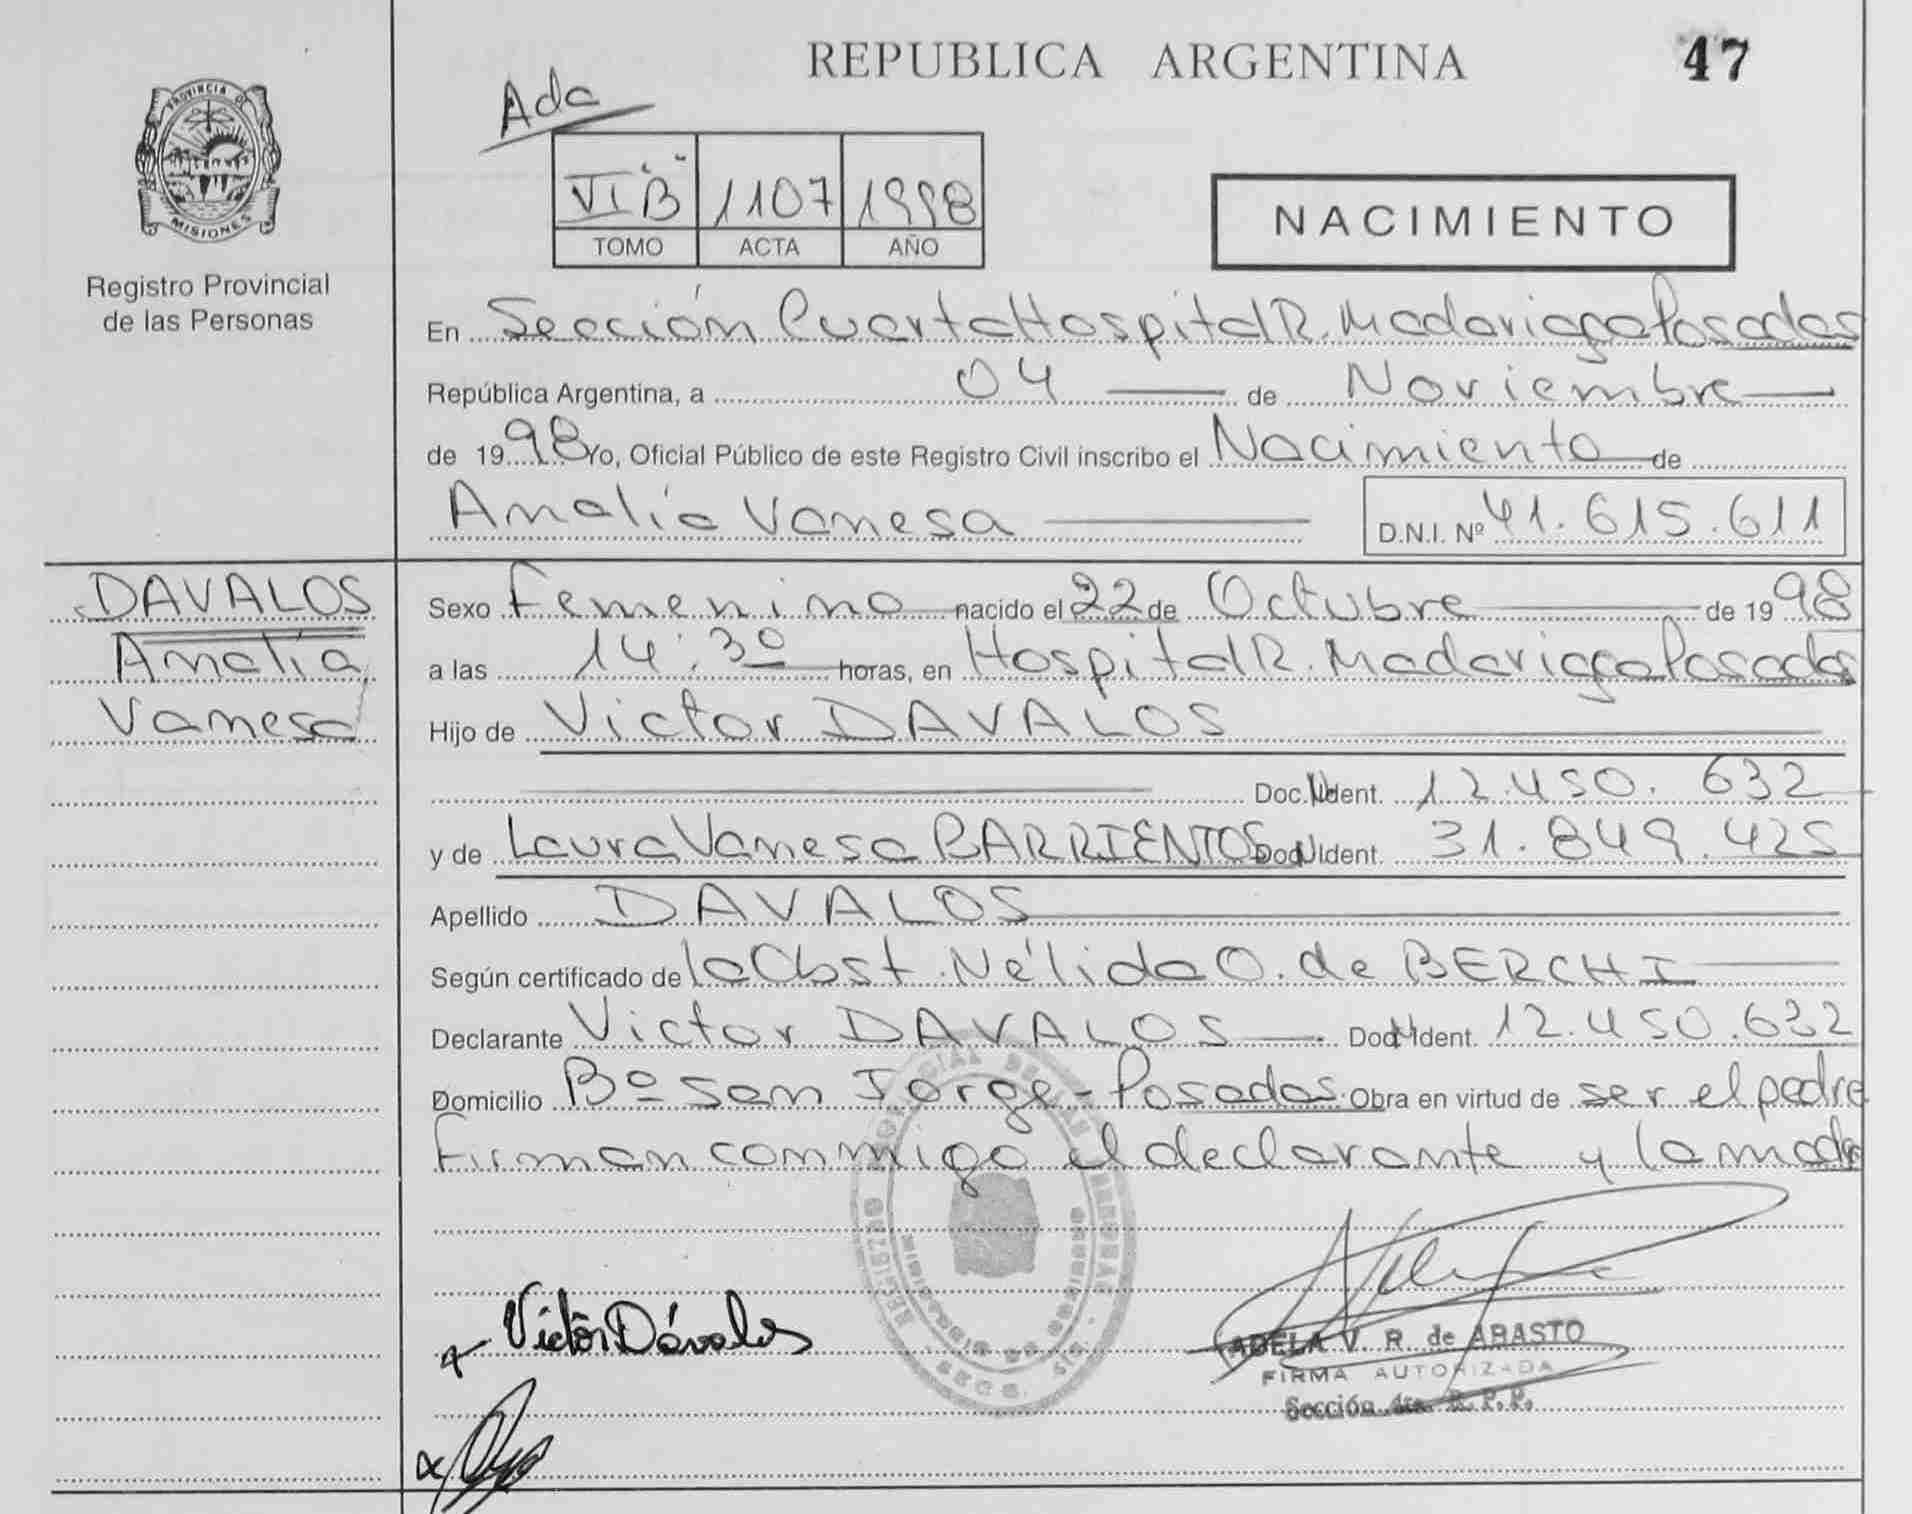 REPUBLICA ARGENTINA
47
Ada
PROVINCIA DE
MISIONES
Registro Provincial
de las Personas
VI "B" 1107 1998
TOMO ACTA AÑO
NACIMIENTO
En Sección Cuarta Hospital R. Madariaga Posadas
República Argentina, a 04 de Noviembre
de 1998 Yo, Oficial Público de este Registro Civil inscribo el Nacimiento de
Amalia Vanesa D.N.I. Nº 41.615.611
DAVALOS
Amalia
Vanesa
Sexo Femenino nacido el 22 de Octubre de 1998
a las 14:30 horas, en Hospital R. Madariaga Posadas
Hijo de Victor DAVALOS
Doc. N Ident. 12.450.632
y de Laura Vanesa BARRIENTOS Doc. N Ident. 31.849.425
Apellido DAVALOS
Según certificado de la Obst. Nélida O. de BERCHI
Declarante Victor DAVALOS Doc. N Ident. 12.450.632
Domicilio Bº San Jorge - Posadas Obra en virtud de ser el padre
Firman conmigo el declarante y la madre
Victor Dávalos
ADELA V. R. de ABASTO
FIRMA AUTORIZADA
Sección 4ta. R. P. P.